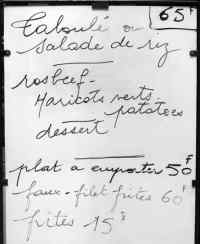 65F
Taboulé ou
Salade de riz
rosbeef.
Haricots verts
potatoes
dessert
plat a emporter 50F
faux-filet frites 60F
frites 15F